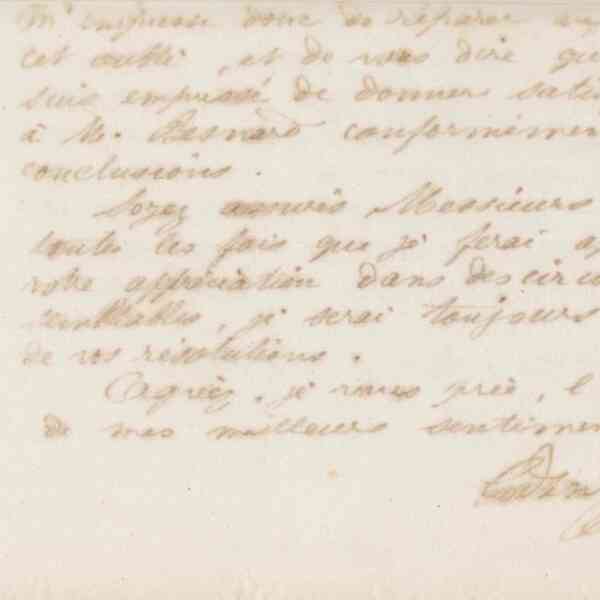 M' empresse donc de réparer
cet oubli, et de vous dire que
suis empressé de donner satis
à M. Besnard conformémen
conclusions.
Soyez assurés Messieurs
toutes les fois que je ferai ap
votre appréciation dans des circo
semblables, je serai toujours
de vos résolutions.
Agréez, je vous prie, l
de mes meilleurs sentimen
Godin